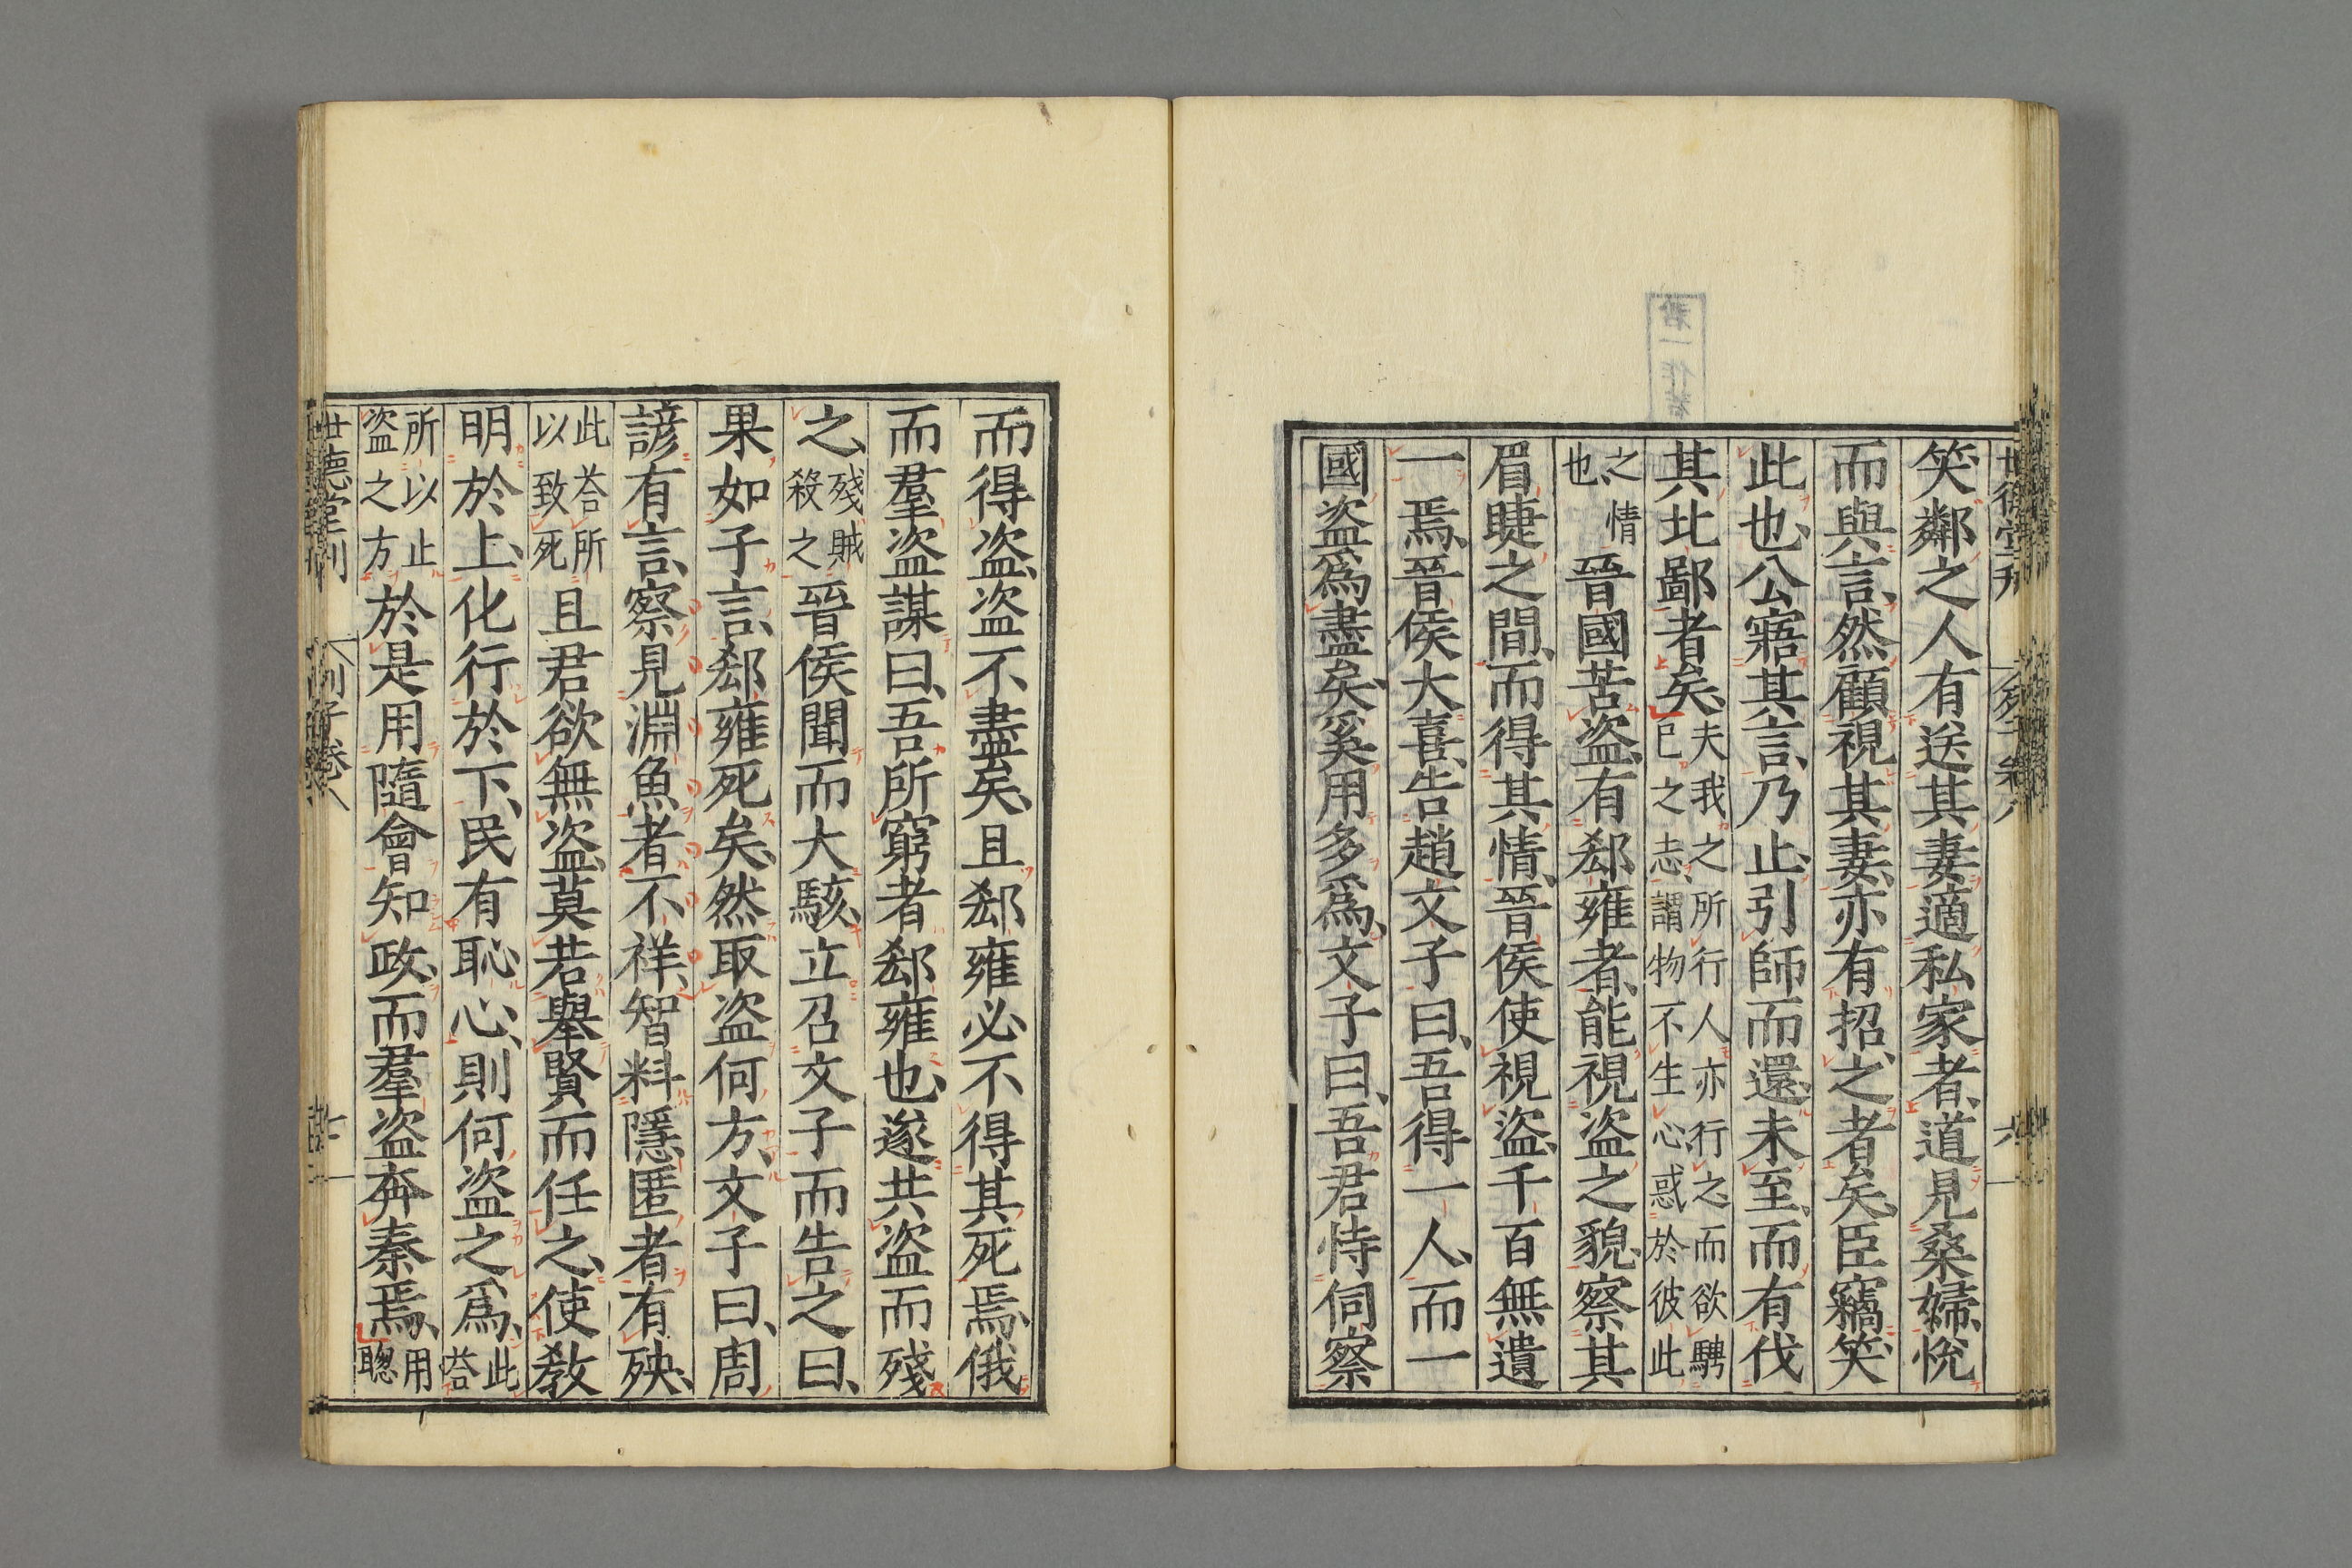 笑鄰之人有送其妻適私家者、道見桑婦、悅
而與言、然顧視其妻、亦有招之者矣、臣竊笑
此也、公寤其言、乃止、引師而還、未至、而有伐
其北鄙者矣、夫我之所行人亦行之而欲騁
已之志、謂物不生心惑於彼此
之情
也
晉國苦盜、有郄雍者、能視盜之貌、察其
眉睫之間、而得其情、晉侯使視盜、千百無遺
一焉、晉侯大喜、告趙文子曰、吾得一人、而一
國盜爲盡矣、奚用多爲、文子曰、吾君恃伺察
而得盜、盜不盡矣、且郄雍必不得其死焉、俄
而羣盜謀曰、吾所窮者郄雍也、遂共盜而殘
之、殘賊
殺之
晉侯聞而大駭、立召文子而告之曰、
果如子言、郄雍死矣、然取盜何方、文子曰、周
諺有言、察見淵魚者不祥、智料隱匿者有殃、
此荅所
以致死
且君欲無盜、莫若舉賢而任之、使敎
明於上、化行於下、民有恥心、則何盜之爲、此
荅
所以止
盜之方
於是用隨會知政、而羣盜奔秦焉、用
聰
世德堂刊
列子卷八
七